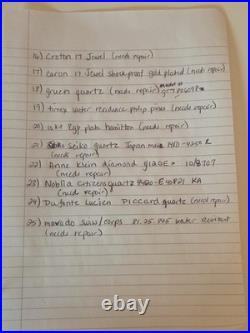 16) Croton 17 Jewel (needs repair)
17) caron 17 Jewel shock proof gold plated (needs repair)
18) gruen quartz (needs repair) model #
19) timex water resistance philip pines (needs repair)
20) 10kt rgp plate hamilton (needs repair)
21) Seiko quartz Japan
(needs repair)
22) Anne Klein diamond
(needs repair)
23) Noblia citizen quartz KA
(needs repair)
24) Dufonte Lucien PICCard quartz (need repair)
25) movado suw/corps 81.25. 845 water resistant
(needs repair)